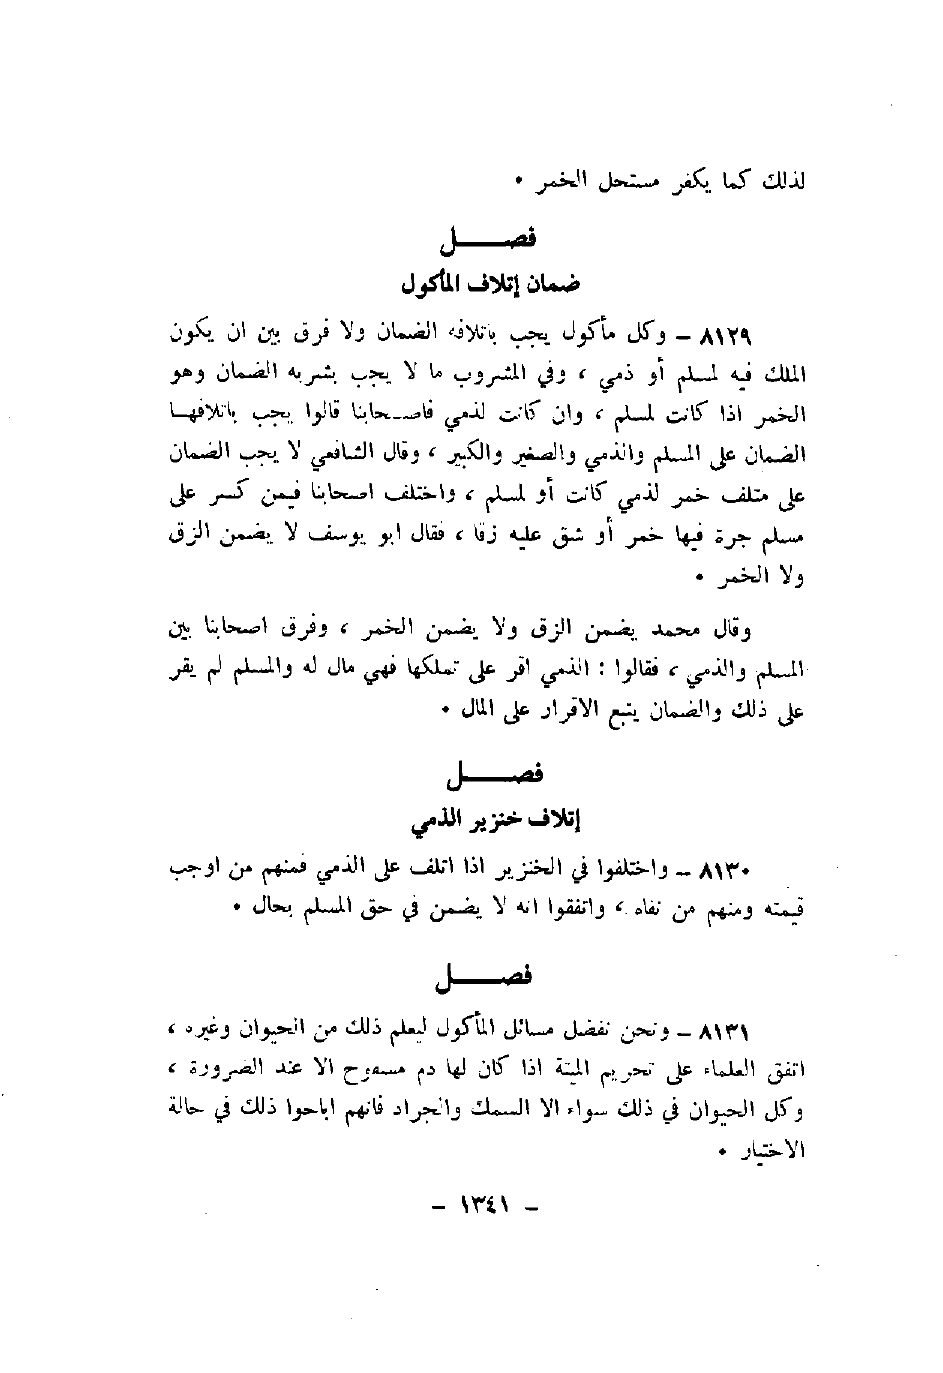 لذلك كما يكفر مستحل الخمر •
فصـــــل
ضمان إتلاف المأكول
٨١٢٩ – وكل مأكول يجب باتلافه الضمان ولا فرق بين ان يكون
الملك فيه لمسلم أو ذمي ، وفي المشروب ما لا يجب بشربه الضمان وهو
الخمر اذا كانت لمسلم ، وان كانت لذمي فاصـحابنا قالوا يجب باتلافهـا
الضمان على المسلم والذمي والصغير والكبير ، وقال الشافعي لا يجب الضمان
على متلف خمر لذمي كانت أو لمسلم ، واختلف اصحابنا فيمن كسر على
مسلم جرة فيها خمر أو شق عليه زقا ، فقال ابو يوسف لا يضمن الزق
ولا الخمر •
وقال محمد يضمن الزق ولا يضمن الخمر ، وفرق اصحابنا بين
المسلم والذمي ، فقالوا : الذمي اقر على تملكها فهي مال له والمسلم لم يقر
على ذلك والضمان يتبع الاقرار على المال •
فصـــــل
إتلاف خنزير الذمي
٨١٣٠ – واختلفوا في الخنزير اذا اتلف على الذمي فمنهم من اوجب
قيمته ومنهم من نفاه ، واتفقوا انه لا يضمن في حق المسلم بحال •
فصـــــل
٨١٣١ – ونحن نفضل مسائل المأكول ليعلم ذلك من الحيوان وغيره ،
اتفق العلماء على تحريم الميتة اذا كان لها دم مسفوح الا عند الضرورة ،
وكل الحيوان في ذلك سواء الا السمك والجراد فانهم اباحوا ذلك في حالة
الاختيار •
– ١٣٤١ –